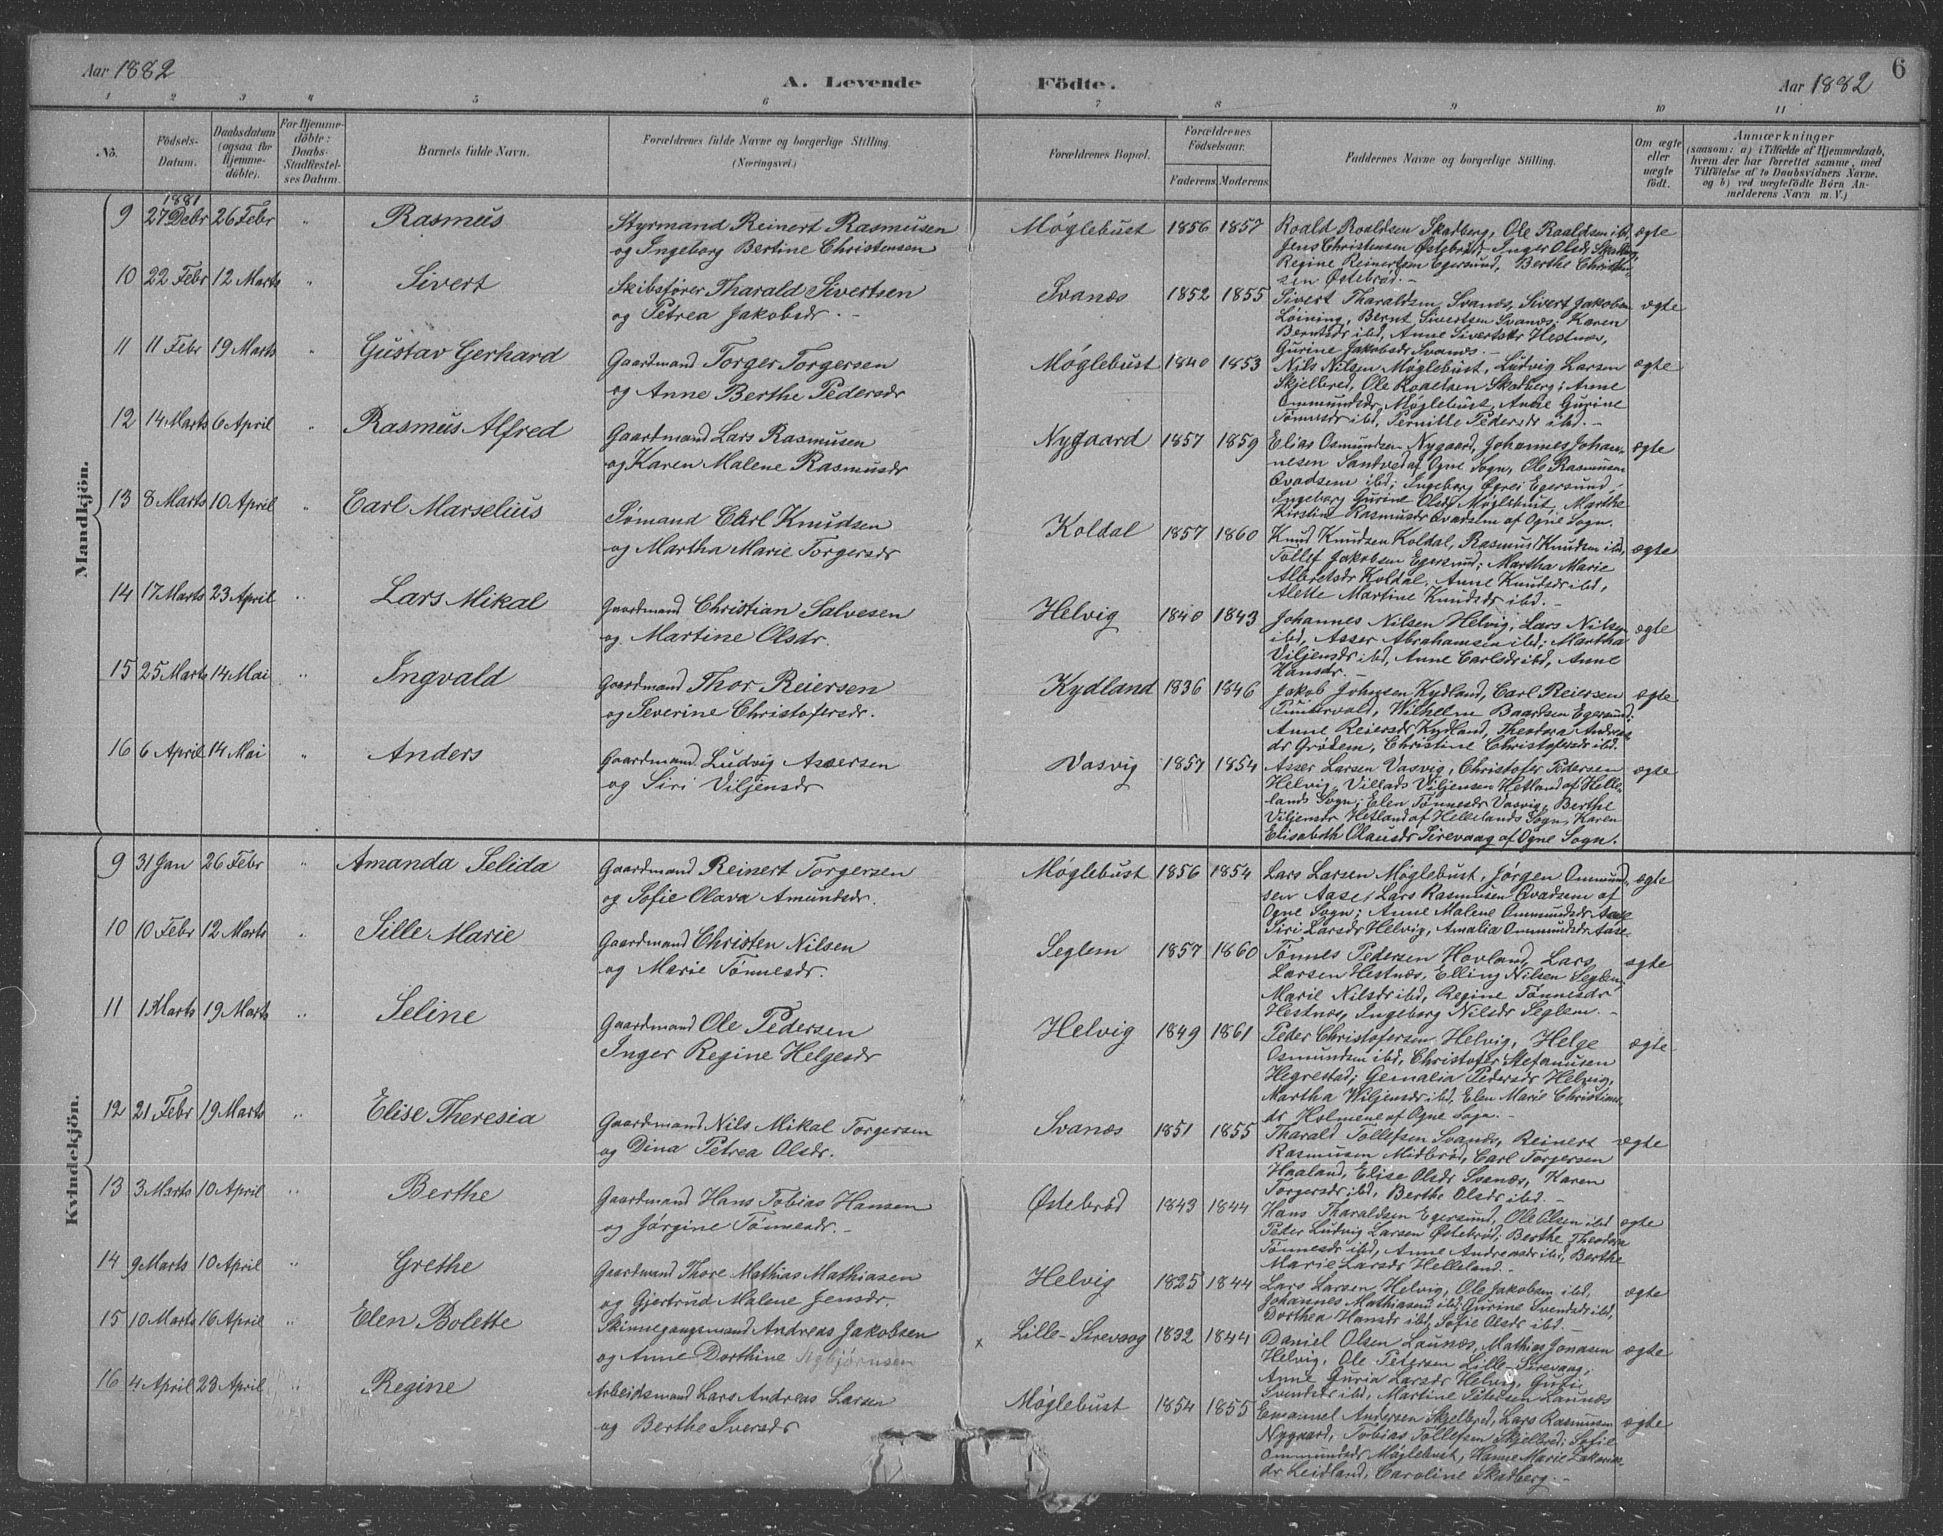 Aar 1882
A. Levende Födte.
Aar 1882
6
1 2 3 4 5 6 7 8 9 10 11
No.
Födsels-Datum.
Daabsdatum (ogsaa for Hjemmedöbte).
For Hjemmedöbte: Daabs-Stadfæstelses Datum.
Barnets fulde Navn.
Forældrenes fulde Navne og borgerlige Stilling. (Næringsvei.)
Forældrenes Bopæl.
Forældrenes Födselsaar.
Faderens. Moderens.
Faddernes Navne og borgerlige Stilling.
Om ægte eller uægte födt.
Anmærkninger
(saasom: a) i Tilfælde af Hjemmedaab,
hvem der har forrettet samme, med
Tilföielse af to Daabsvidners Navne,
og b) ved uægtefödte Börn An-
melderens Navn m. V.)
Mandkjön.
1881
9 27 Debr 26 Febr " Rasmus Styrmand Reinert Rasmusen Møglebust 1856 1857 Roald Roaldsen Skadberg, Ole Roaldsen ibd, ægte
og Ingeborg Bertine Christensen Jens Christensen Østebrød; Inger Olsdr Skadberg,
Regine Reinertsen Egersund, Berthe Christen-
sen Østebrød. -
10 22 Febr 12 Marts " Sivert Skibsfører Tharald Sivertsen Svanæs 1852 1855 Sivert Tharaldsen Svanæs, Sivert Jakobsen ægte
og Petrea Jakobsdr. - Løining, Bernt Sivertsen Svanæs; Karen
Berntsdr ibd, Anne Sivertsdr Hestnæs,
Gurine Jakobsdr Svanæs. -
11 11 Febr 19 Marts " Gustav Gerhard Gaardmand Torger Torgersen Møglebust 1840 1853 Nils Nilsen Møglebust, Ludvig Larsen ægte
og Anne Berthe Pedersdr Skjelbred, Ole Roaldsen Skadberg; Anne
Ommundsdr Møglebust, Anne Gurine
Tønnesdr ibd, Pernille Pedersdr ibd. -
12 14 Marts 6 April " Rasmus Alfred Gaardmand Lars Rasmusen Nygaard 1857 1859 Elias Osmundsen Nygaard, Johannes Johan- ægte
og Karen Malene Rasmusdr nesen Sandved af Ogne Sogn, Ole Rasmusen
Qvadsem ibd; Ingeborg Egersund,
Ingeborg Gurine Olsdr Møglebust, Martha
Kirstine Rasmusdr Qvadsem af Ogne Sogn.
13 8 Marts 10 April " Carl Marselius Sømand Carl Knudsen Koldal 1857 1860 Knud Knudsen Koldal, Rasmus Knudsen ibd, ægte
og Martha Marie Torgersdr Tollef Jakobsen Egersund; Martha Marie
Albretsdr Koldal, Anne Knudsdr ibd,
Alette Martine Knudsdr ibd. -
14 17 Marts 23 April " Lars Mikal Gaardmand Christian Salvesen Helvig 1840 1843 Johannes Nilsen Helvig, Lars Nilsen ægte
og Martine Olsdr. ibd, Asser Abrahamsen ibd; Martha
Viljensdr ibd, Anne Carlsdr ibd, Anne
Hansdr. -
15 25 Marts 14 Mai " Ingvald Gaardmand Thor Reiersen Kydland 1836 1846 Jakob Johnsen Kydland, Carl Reiersen ægte
og Severine Christofersdr. Puntervold, Wilhelm Baardsen Egersund;
Anne Reiersdr Kydland, Theodora Andreas-
dr Grødem, Christine Christofersdr ibd.
16 6 April 14 Mai " Anders Gaardmand Ludvig Assersen Vasvig 1857 1854 Asser Larsen Vasvig, Christofer Pedersen ægte
og Siri Viljensdr Helvig, Villads Viljensen Hetland af Helle-
lands Sogn; Elen Tønnesdr Vasvig, Berthe
Viljensdr Hetland af Hellelands Sogn, Karen
Elisabeth Olausdr Sirevaag af Ogne Sogn.
Kvindekjön.
9 31 Jan 26 Febr " Amanda Selida Gaardmand Reinert Torgersen Møglebust 1856 1854 Lars Larsen Møglebust, Jørgen Ommund- ægte
og Sofie Olava Amundsdr. sen Aase, Lars Rasmusen Qvadsem af
Ogne Sogn; Anne Malene Ommundsdr Aase
Siri Larsdr Helvig, Amalia Ommundsdr Aase.
10 10 Febr 12 Marts " Sille Marie Gaardmand Christen Nilsen Seglem 1857 1860 Tønnes Pedersen Hovland, Lars ægte
og Marie Tønnesdr. Larsen Hestnæs, Elling Nilsen Seglem;
Marie Nilsdr ibd, Regine Tønnesdr
Hestnæs, Ingeborg Nilsdr Seglem. -
11 1 Marts 19 Marts " Seline Gaardmand Ole Pedersen Helvig 1849 1861 Peder Christofersen Helvig, Helge ægte
Inger Regine Helgesdr Osmundsen ibd, Christofer Stefanusen
Hegrestad; Gemalia Pedersdr Helvig,
Martha Wiljensdr ibd, Elen Marie Christian-
dr Holmene af Ogne Sogn. -
12 21 Febr 19 Marts " Elise Theresia Gaardmand Nils Mikal Torgersen Svanæs 1851 1855 Tharald Tollefsen Svanæs, Reinert ægte
og Dina Petrea Olsdr. Rasmusen Midbrød, Carl Torgersen
Haaland, Elise Olsdr Svanæs, Karen
Torgersdr ibd, Berthe Olsdr ibd. -
13 3 Marts 10 April " Berthe Gaardmand Hans Tobias Hansen Østebrød 1843 1844 Hans Tharaldsen Egersund, Ole Olsen ibd ægte
og Jørgine Tønnesdr. - Peder Ludvig Larsen Østebrød; Berthe Theodora
Tønnesdr ibd, Anne Andreasdr ibd, Berthe
Marie Larsdr Helleland. -
14 9 Marts 10 April " Grethe Gaardmand Thore Mathias Mathiasen Helvig 1825 1844 Lars Larsen Helvig, Ole Jakobsen ibd, ægte
og Gjertrud Malene Jensdr. Johannes Mathiasen ibd; Gurine Svendsdr ibd,
Dorthea Hansdr ibd, Sofie Olsdr ibd. -
15 10 Marts 16 April " Elen Bolette Skinnegangsmand Andreas Jakobsen x Lille-Sirevaag 1832 1844 Daniel Olsen Launæs, Mathias Jonasen ægte
og Anne Dorthine Asbjørnsen Helvig, Ole Petersen Lille-Sirevaag;
Anne Guria Larsdr Helvig, Guri
Svendsdr ibd, Martine Petersen Launæs
16 4 April 23 April " Regine Arbeidsmand Lars Andreas Larsen Møglebust 1854 1855 Emanuel Andersen Skjelbred, Lars Rasmusen ægte
og Berthe Iversdr Nygaard, Tobias Tollefsen Skjelbred; Sofie
Ommundsdr Møglebust, Hanne Marie Zakarias-
dr Leidland, Caroline Skadberg. -